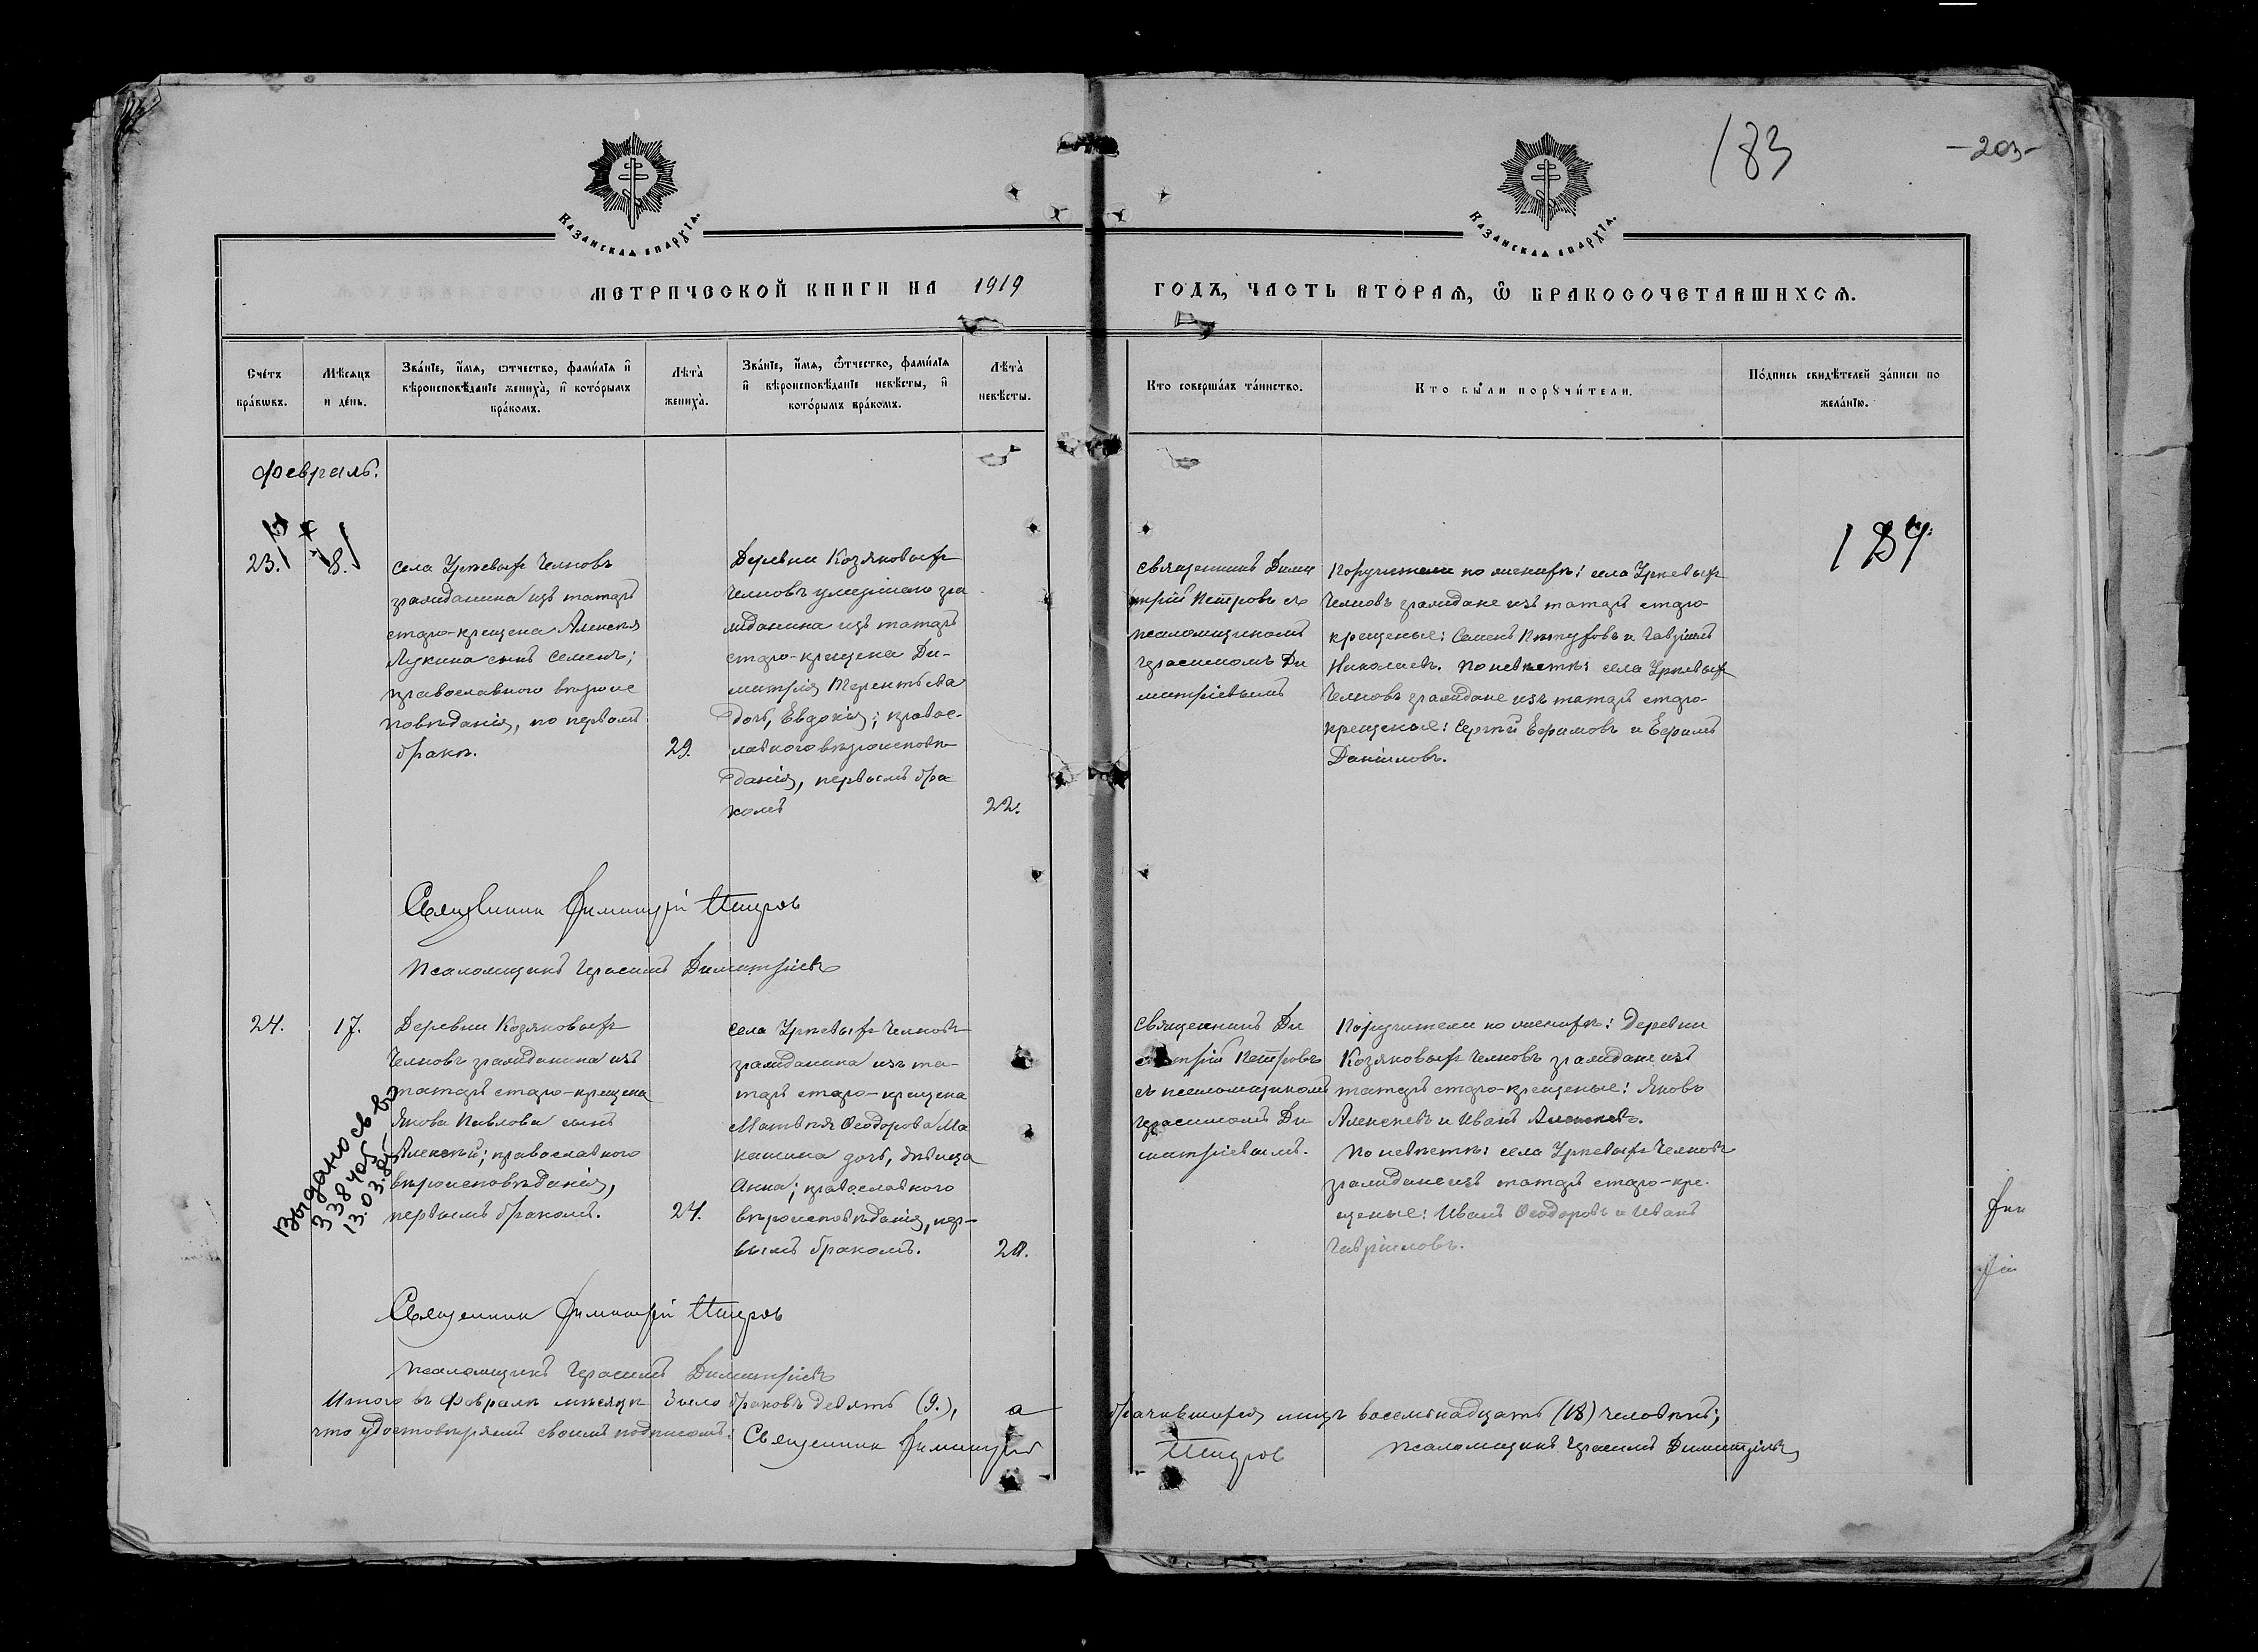 183
-203-
КАЗАНСКАѦ ЕПАРХІѦ.
КАЗАНСКАѦ ЕПАРХІѦ.
МЕТРИЧЕСКОЙ КНИГИ НА 1919
ГОДЪ, ЧАСТЬ ВТОРАѦ, Ѿ БРАКОСОЧЕТАВШИХСѦ.
Счетъ браковъ.
Мѣсяцъ и день.
Званіе, имя, отчество, фамилія и
вѣроисповѣданіе жениха, и которымъ
бракомъ.
Лѣта
жениха.
Званіе, имя, отчество, фамилія
и вѣроисповѣданіе невѣсты, и
которымъ бракомъ.
Лѣта
невѣсты.
Кто совершалъ таинство.
Кто были поручители.
Подпись свидѣтелей записи по
желанію.
Февраль.
23.
8.
села Уркевыхъ Челновъ
гражданина изъ татаръ
старо-крещена Алексѣя
Лукина сынъ Семенъ;
православного вѣроис
повѣданія, по первомъ
бракѣ.
29.
Деревни Козяковыхъ
Челновъ умершаго гра
жданина изъ татаръ
старо-крещена Ди-
митрія Терентьева
дочь, Евдокія; правос-
лавного вѣроисповѣ
данія, первымъ бра
комъ
22.
Священникъ Дими
трій Петровъ съ
псаломщикомъ
Герасимомъ Ди
митріевымъ
Поручители по женихѣ: села Уркевыхъ
Челновъ граждане изъ татаръ старо-
крещеные: Семенъ и Гавріилъ
Николаевъ. По невѣстѣ: села Уркевыхъ
Челновъ граждане изъ татаръ старо-
крещеные: Сергѣй Ефимовъ и Ефимъ
Даніиловъ.
184
Священникъ Димитрій Петровъ
Псаломщикъ Герасимъ Димитріевъ
24.
17.
Деревни Козяковыхъ
Челновъ гражданина изъ
татаръ старо-крещена
Якова Павлова сынъ
Алексѣй; православного
вѣроисповѣданія,
первымъ бракомъ.
24.
Выдано св-во
338405
13.03.
села Уркевыхъ Челновъ
гражданина изъ та-
таръ старо-крещена
Матвѣя Ѳеодорова Ма
кашина дочь, дѣвица
Анна; православного
вѣроисповѣданія, пер-
вымъ бракомъ.
20.
Священникъ Ди
митрій Петровъ
съ псаломщикомъ
Герасимомъ Ди-
митріевымъ.
Поручители по женихѣ: Деревни
Козяковыхъ Челновъ граждане изъ
татаръ старо-крещеные: Яковъ
Алексѣевъ и Иванъ Алексѣевъ.
По невѣстѣ: села Уркевыхъ Челновъ
граждане изъ татаръ старо-кре-
щеные: Иванъ Ѳеодоровъ и Иванъ
Гавріиловъ.
Священникъ Димитрій Петровъ
Псаломщикъ Герасимъ Димитріевъ
Итого въ Февралѣ мѣсяцѣ было браковъ девять (9.), а брачившихся лицъ восемьнадцать (18) человѣкъ;
что удостовѣряемъ своимъ подписомъ: Священникъ Димитрій Петровъ Псаломщикъ Герасимъ Димитріевъ